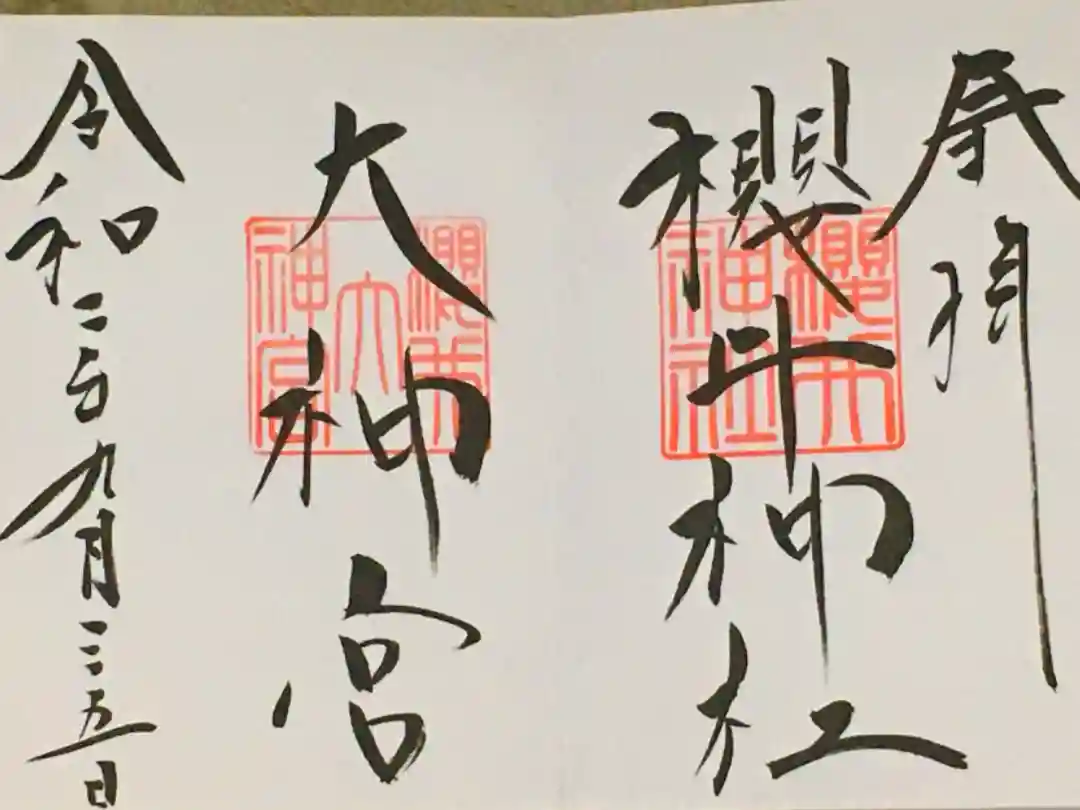 奉拝
櫻井神社
櫻井
神社
大神宮
櫻井
大
神宮
令和二年九月二五日